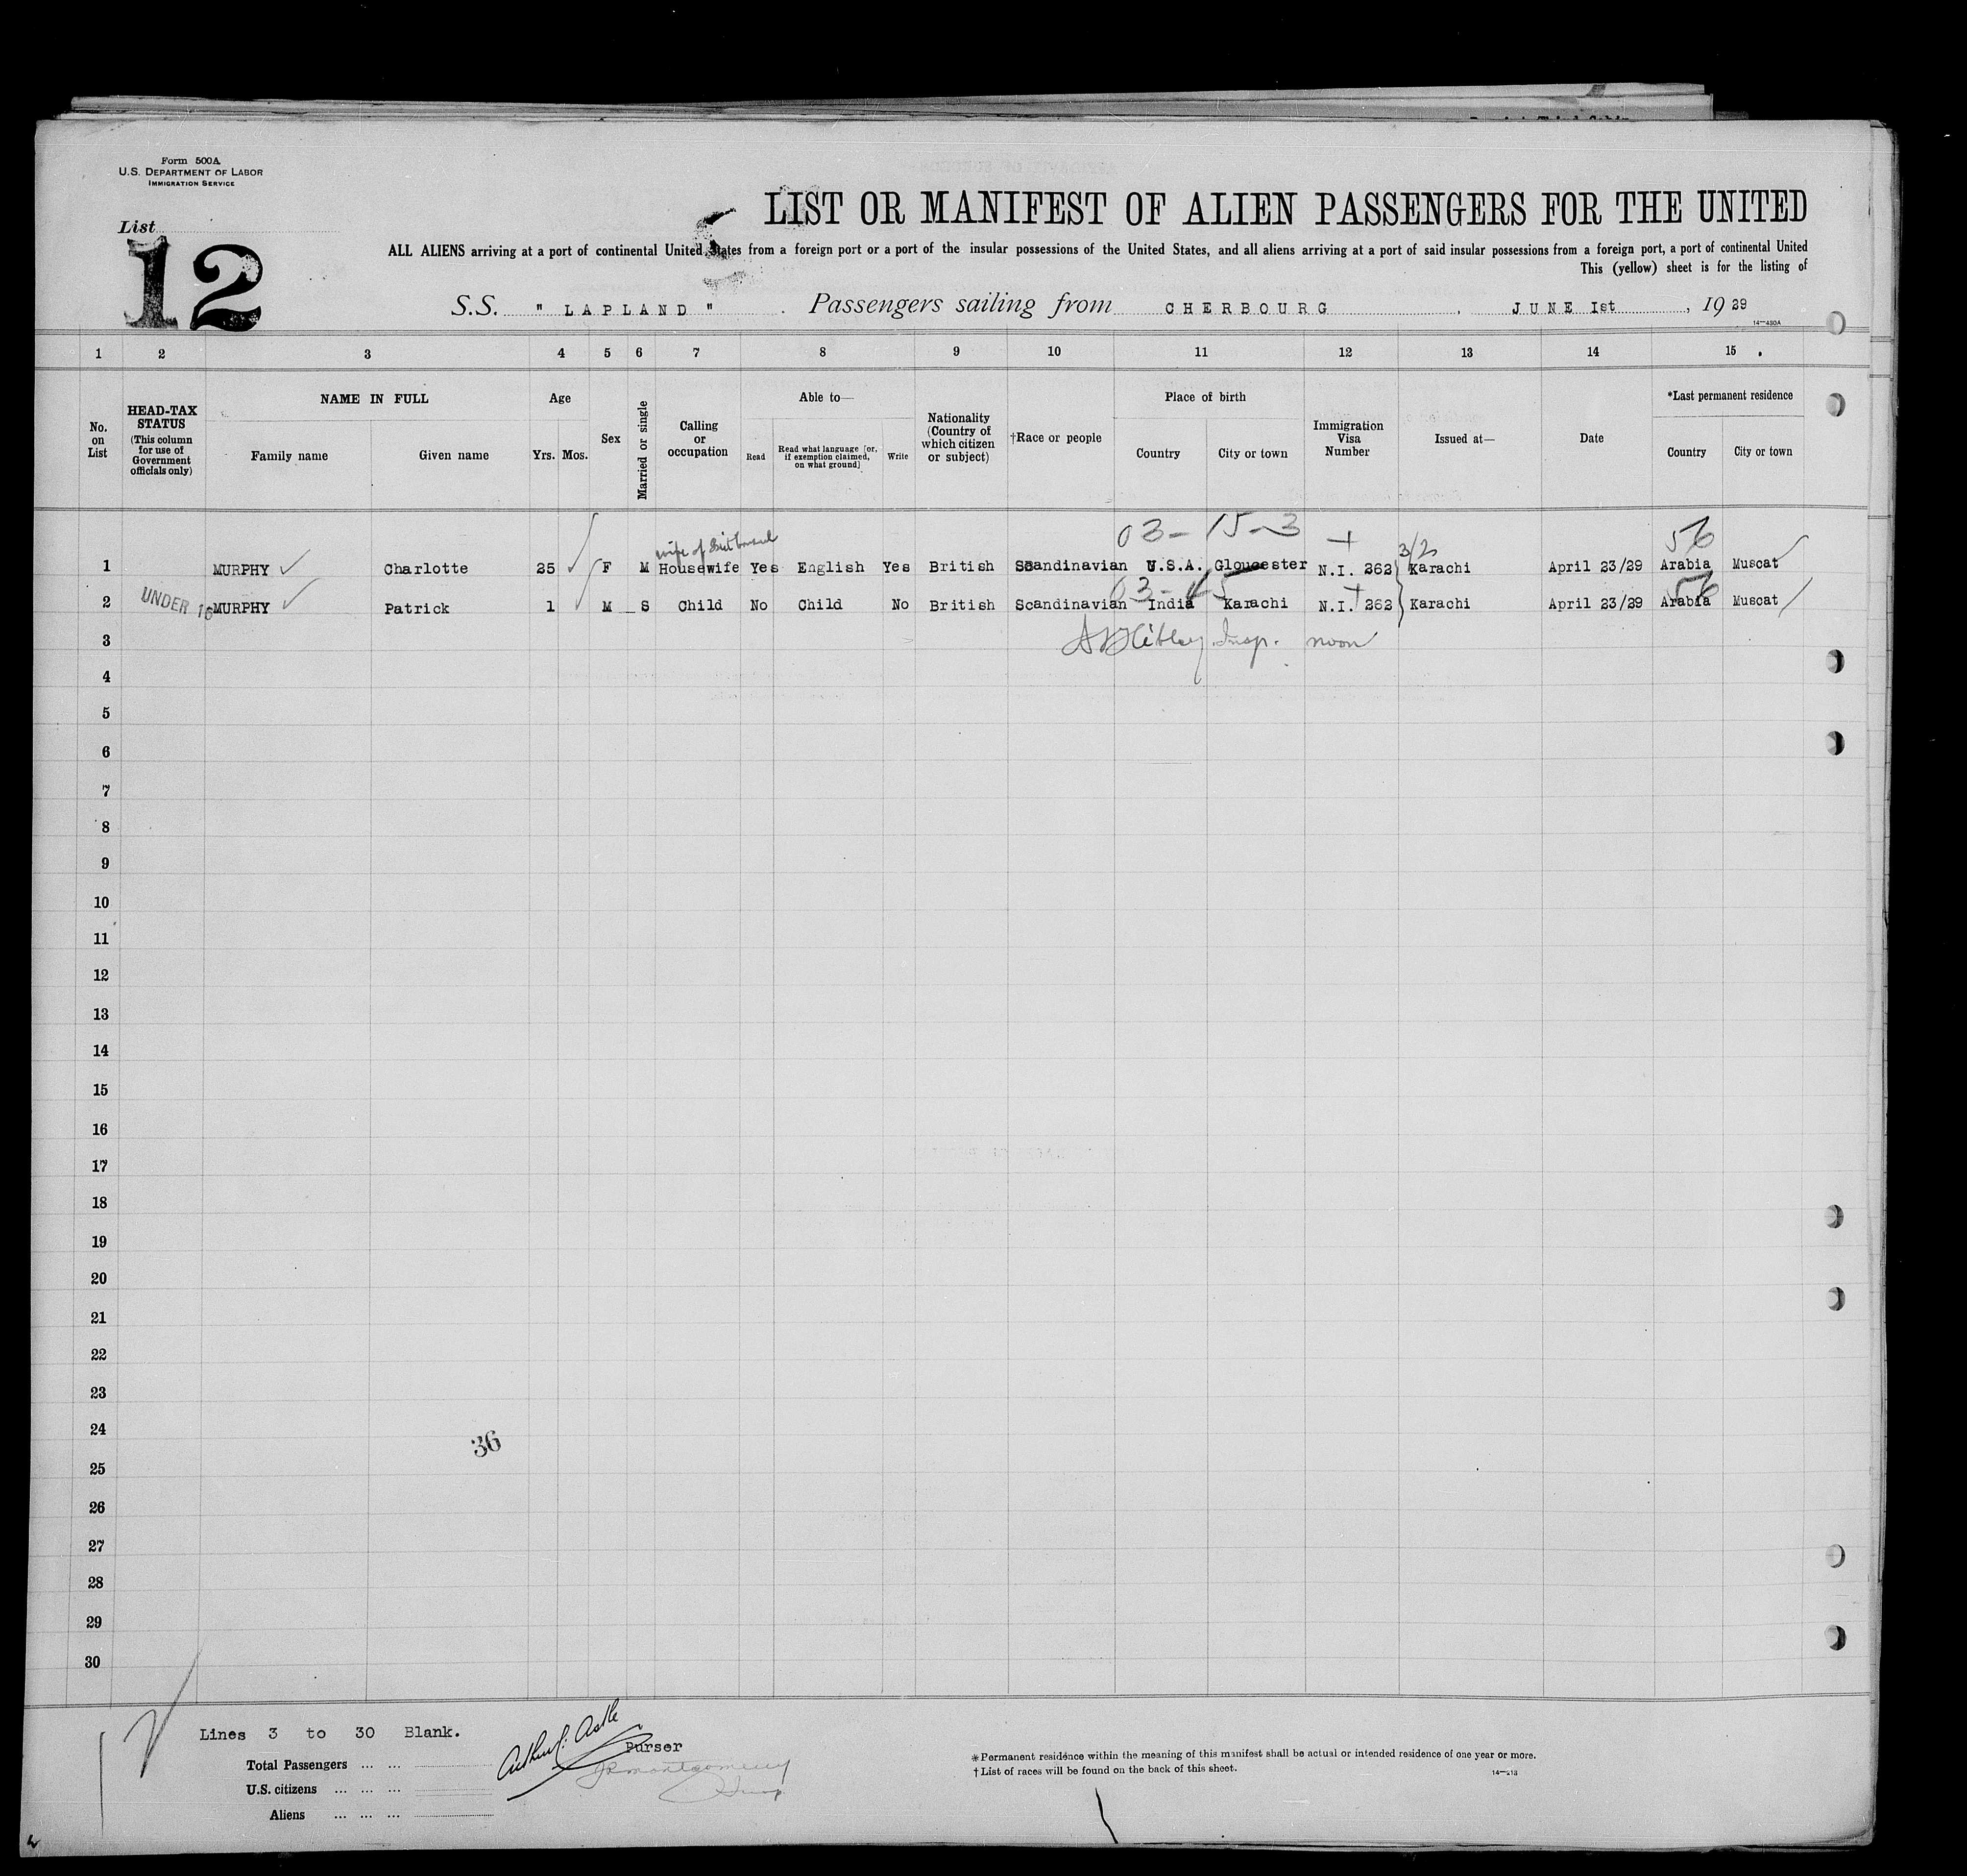 Form 500A
U.S. DEPARTMENT OF LABOR
IMMIGRATION SERVICE
List
12
LIST OR MANIFEST OF ALIEN PASSENGERS FOR THE UNITED
ALL ALIENS arriving at a port of continental United States from a foreign port or a port of the insular possessions of the United States, and all aliens arriving at a port of said insular possessions from a foreign port, a port of continental United
This (yellow) sheet is for the listing of
S.S. " LAPLAND " . Passengers sailing from CHERBOURG , JUNE 1st , 19 29
14—480A
1 2 3 4 5 6 7 8 9 10 11 12 13 14 15
No. on List
HEAD-TAX STATUS
(This column for use of Government officials only)
NAME IN FULL
Family name
Given name
Age
Yrs. Mos.
Sex
Married or single
Calling or occupation
Able to—
Read
Read what language [or, if exemption claimed, on what ground]
Write
Nationality (Country of which citizen or subject)
†Race or people
Place of birth
Country
City or town
Immigration Visa Number
Issued at—
Date
*Last permanent residence
Country
City or town
03-15-3
56
wife of
3/2
1 MURPHY Charlotte 25 F M Housewife Yes English Yes British Scandinavian U.S.A. Gloucester N.I. 262 Karachi April 23/29 Arabia Muscat
03-15
56
2 UNDER 16 MURPHY Patrick 1 M S Child No Child No British Scandinavian India Karachi N.I. 262 Karachi April 23/29 Arabia Muscat
3 Insp. noon
4
5
6
7
8
9
10
11
12
13
14
15
16
17
18
19
20
21
22
23
24
36
25
26
27
28
29
30
Lines 3 to 30 Blank.
Purser
Total Passengers ... ...
U.S. citizens ... ... ...
Aliens ... ... ...
Montgomery
*Permanent residence within the meaning of this manifest shall be actual or intended residence of one year or more.
†List of races will be found on the back of this sheet.
14—213